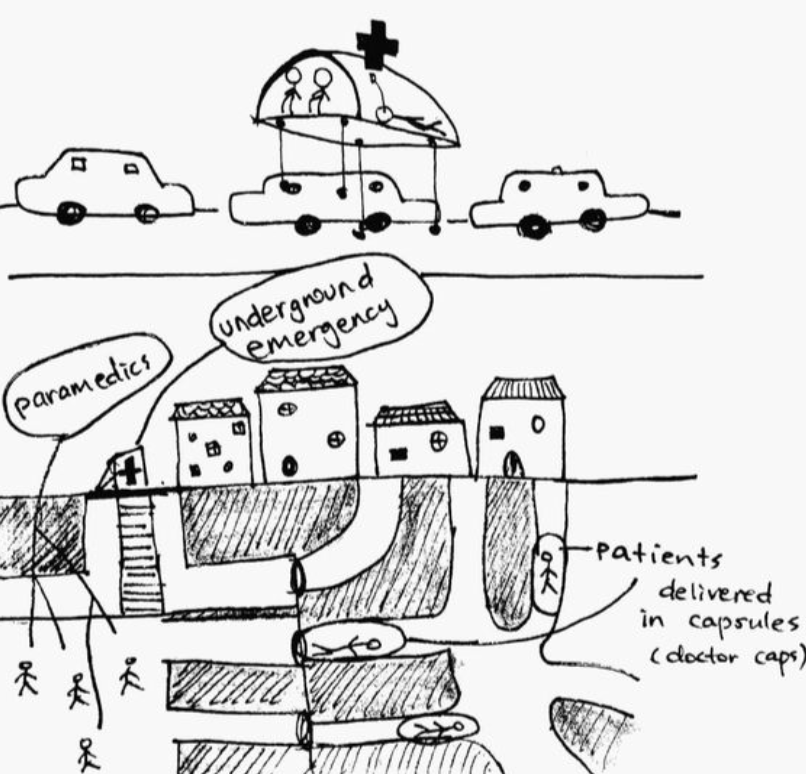 underground
emergency
paramedics
patients
delivered
in capsules
(doctor caps)